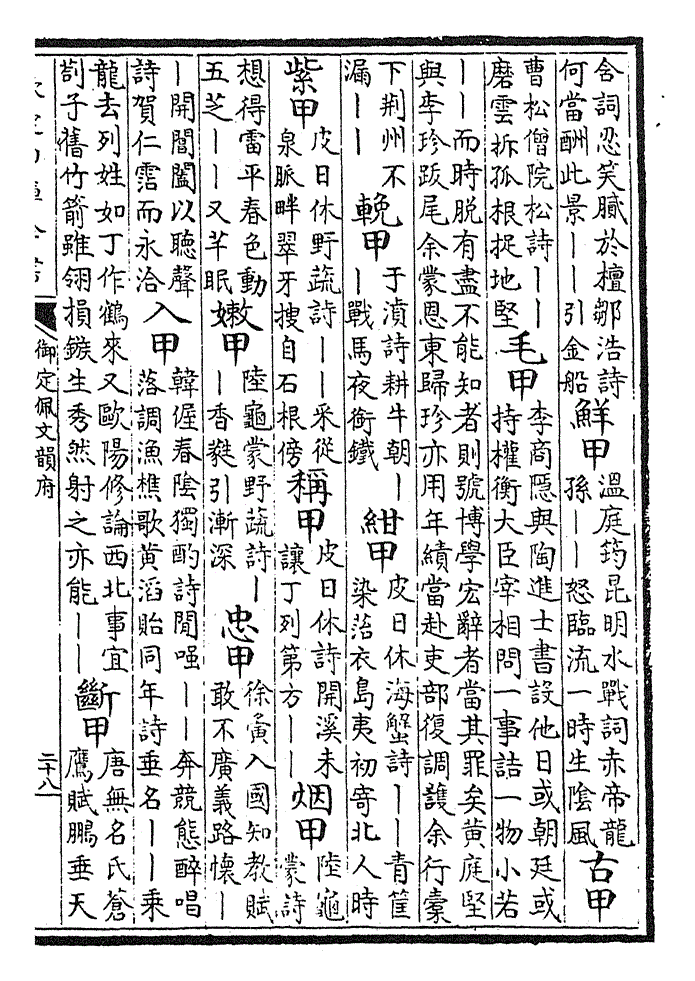 含詞忍笑膩於檀鄒浩詩
何當酬此景——引金船
鮮甲
溫庭筠昆明水戰詞赤帝龍
孫——怒臨流一時生陰風
古甲
曹松僧院松詩——
磨雲拆孤根捉地堅
毛甲
李商隱與陶進士書設他日或朝廷或
持權衡大臣宰相問一事詰一物小若
——而時脫有盡不能知者則號博學宏辭者當其罪矣黄庭堅
與李珍跋尾余蒙恩東歸珍亦用年績當赴吏部復調護余行橐
下荆州不
漏——
輓甲
于濆詩耕牛朝—
—戰馬夜銜鐵
紺甲
皮日休海蟹詩——青筐
染落衣島夷初寄北人時
紫甲
皮日休野蔬詩——采從
泉脈畔翠牙搜自石根傍
稱甲
皮日休詩開溪未
讓丁列第方——
烟甲
陸龜
蒙詩
想得雷平春色動
五芝——又芊眠
嫩甲
陸龜蒙野蔬詩—
—香蕤引漸深
忠甲
徐夤入國知教賦
敢不廣義路懷—
—開閶闔以聽聲
詩賀仁霑而永洽
入甲
韓偓春陰獨酌詩閒嗢——奔競態醉唱
落調漁樵歌黄滔貽同年詩垂名——乘
龍去列姓如丁作鶴來又歐陽修論西北事宜
劄子舊竹箭雖翎損鏃生秀然射之亦能——
斷甲
唐無名氏蒼
鷹賦鵬垂天
御定佩文韻府
二十八